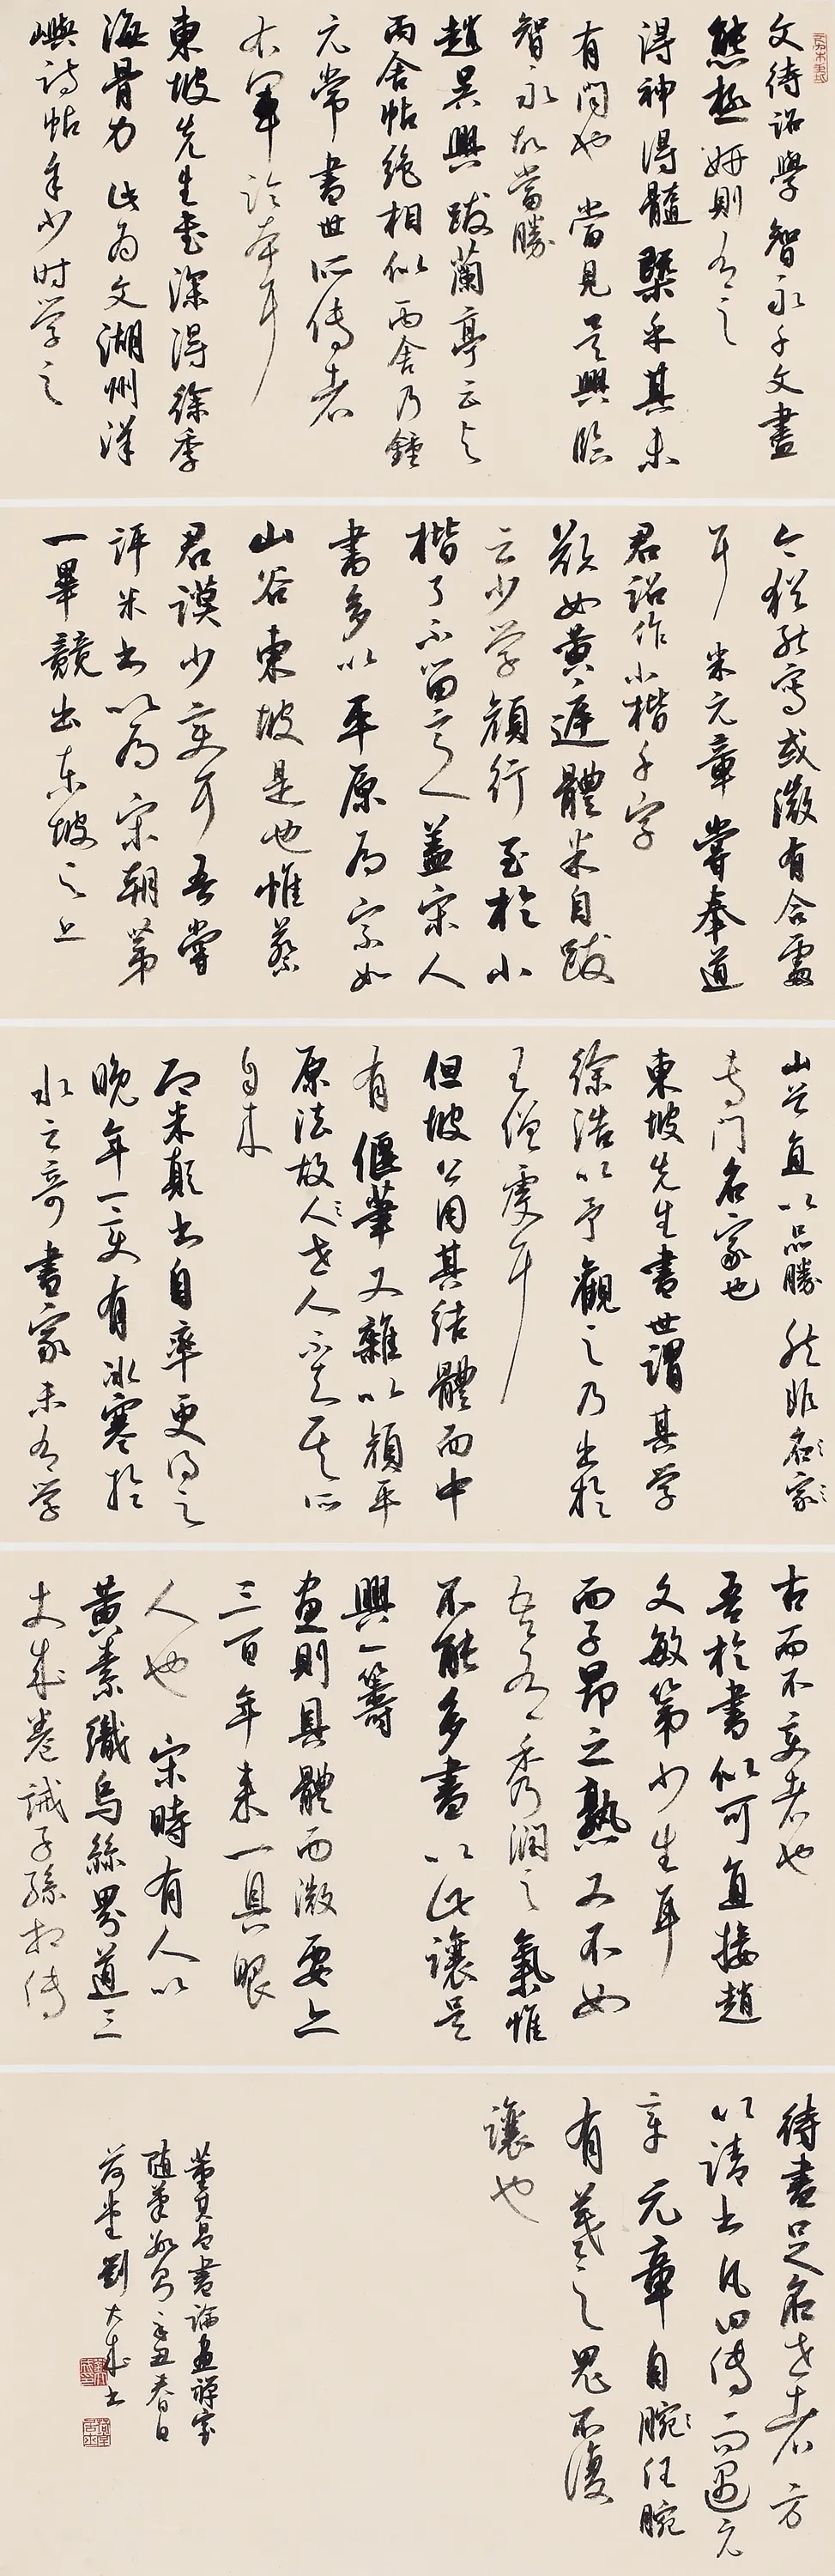 文待詔學智永千文盡
態極妍則有之
得神得髓槩乎其未
有聞也嘗見吳興臨
智永故當勝
趙吳興跋蘭亭云與
丙舍帖絶相似丙舍乃鍾
元常書世所傳者
右軍臨本耳
東坡先生書深得徐季
海骨力此為文湖州洋
嶼詩帖余少時學之
今猶能寫或微有合處
耳米元章嘗奉道
君詔作小楷千字
欲如黃庭體米自跋
云少學顏行至於小
楷了不留意蓋宋人
書多以平原為宗如
山谷東坡是也惟蔡
君謨少變耳吾嘗
評米書以為宋朝第
一畢竟出東坡之上
山谷直以品勝然非名家
專門名家也
東坡先生書世謂其學
徐浩以予觀之乃出於
王僧虔耳
但坡公用其結體而中
有偃筆又雜以顏平
原法故人々世人不知其所
自來
即米顛書自率更得之
晚年一變有冰寒於
水之奇書家未有學
古而不變者也
吾於書似可直接趙
文敏第少生耳
而子昂之熟又不如
吾有秀潤之氣惟
不能多書以此讓吳
興一籌
畫則具體而微要亦
三百年來一具眼
人也宋時有人以
黃素織烏絲界道三
丈成卷誡子孫相傳
待書足名世者方
以請書凡四傳而遇元
章元章自腕々任腕
有羲之鬼不復
讓也
董其昌書論畫禪室
隨筆數則辛丑春日
荷堂劉大成書